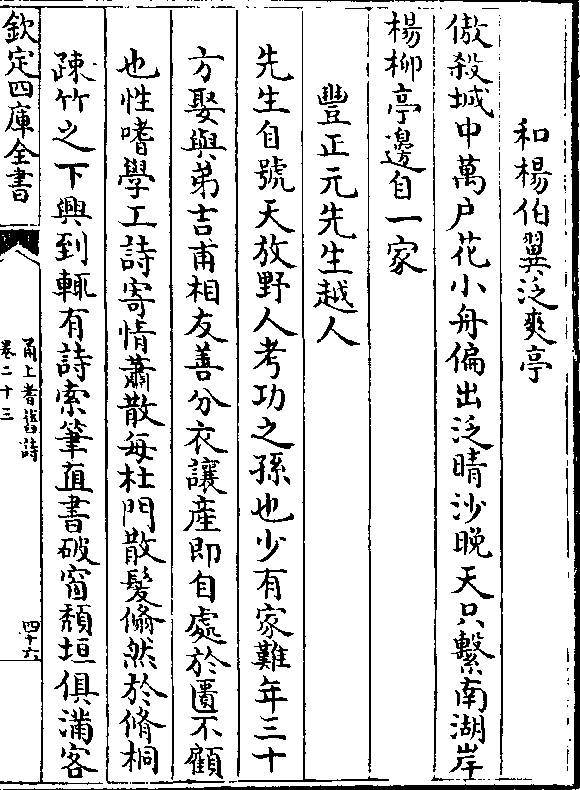 和楊伯翼泛爽亭
傲殺城中萬户花小舟偏出泛晴沙晚天只繫南湖岸
楊柳亭邊自一家
豐正元先生越人
先生自號天放野人考功之孫也少有家難年三十
方娶與弟吉甫相友善分衣讓産即自處於匱不顧
也性嗜學工詩寄情蕭散每杜門散髮翛然於脩桐
疎竹之下興到輒有詩索筆直書破窗頽垣俱滿客
欽定四庫全書
甬上耆舊詩
卷二十三
四十六